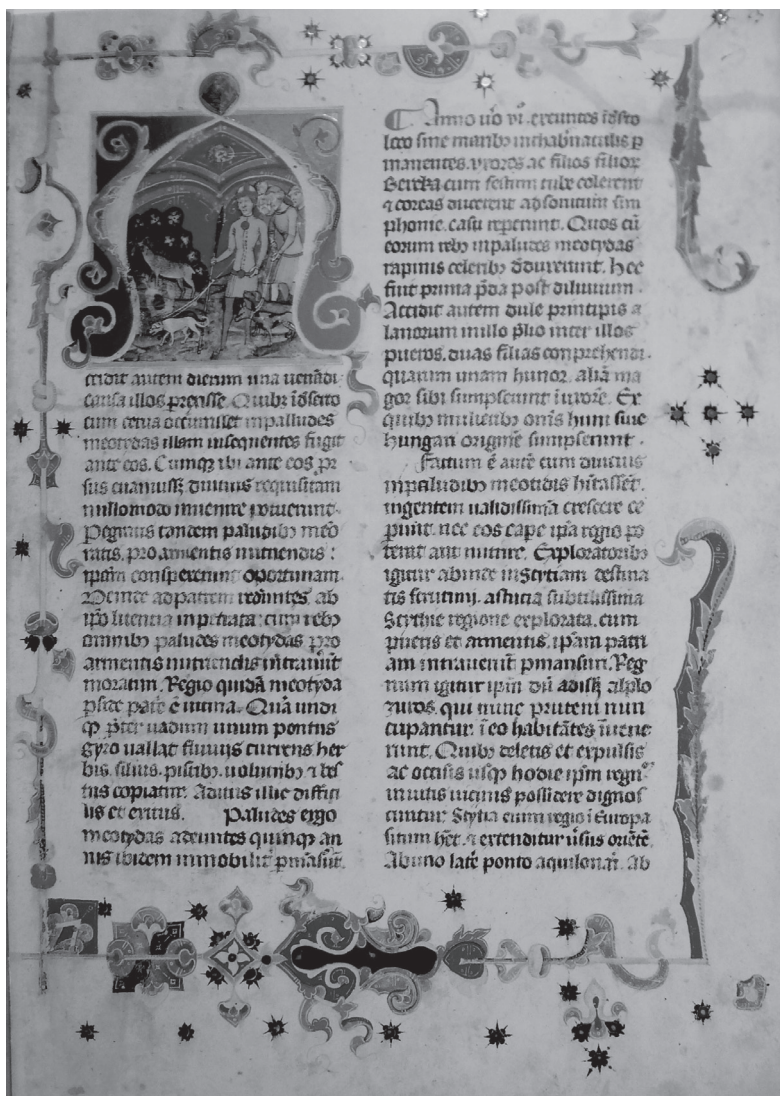 ccidit autem dierum una uenādi
causa illos perrexisse. Quibꝫ ī deserto
cum cerua occurrisset in palludes
meotidas illam insequentes fugit
ante eos. Cumqꝫ ibi ante eos pr
sus euanuisset diutius requisitam
nullo modo inuenire potuerunt.
Peragratis tandem paludibꝫ meo
tatis, pro armentis nutriendis
ipam conspexerunt oportunam.
Deinde ad patrem redeūtes, ab
ipo licentia inpetrata: cum rebꝫ
omnibꝫ paludes meotydas pro
armentis nutriendis intrauūt
moraturi. Regio quidā meotyda
pside patrie ē uicina. Quā undi
qꝫ preter uadum unum pontus
gyro uallat fluuijs currens her
bis, siluis, piscibꝫ, uolucribꝫ ⁊ bes
tiis copiatur. Aditus illic diffici
lis et exitus. Paludes ergo
meotydas adeuntes quinqꝫ an
nis ibidem inmobilit' pmāserūt
Anno uo vi. exeuntes ī deserto
loco sine maribꝫ in thabernaculis p
manentes, vxores ac filios filior
Bereka cum festum tube colerent
⁊ coreas ducerent ad sonitum sim
phonie, casu repererunt. Quos cū
eorum rebꝫ in paludes meotydas
rapinis celeribꝫ deduxerunt. Hec
fuit prima pda post diluuium.
Accidit autem dule principis a
lanorum in illo plio inter illos
pueros, duas filias conprehendi.
quarum unam hunor, aliā ma
gor sibi sumpserunt ī uxorē. Ex
quibꝫ mulieribꝫ omīs huni siue
hungari originē sumpserunt.
Factum ē autē cum diucius
in paludibꝫ meotidis hītassēt.
in gentem ualidissimā crescere ce
perūt, nec eos capere ipa regio po
terat aut nutrire. Exploratoribꝫ
igitur abinde in Scytiam destina
tis
astucia subtilissima
Scythie regione explorata, cum
pueris et armentis, ipam patri
am intrauerūt pmansuri. Reg
num igitur ipm dū adissēt alplo
zuros, qui nunc pruteni nun
cupantur, ī eo habitātes inuene
runt. Quibꝫ deletis et expulsis
ac occisis usqꝫ hodie ipm regnū
inuitis uicinis possidere dignos
cuntur. Scytia enim regio ī Europa
situm het, ⁊ extenditur uersus oriētē
Ab uno late ponto aquilonari. Ab